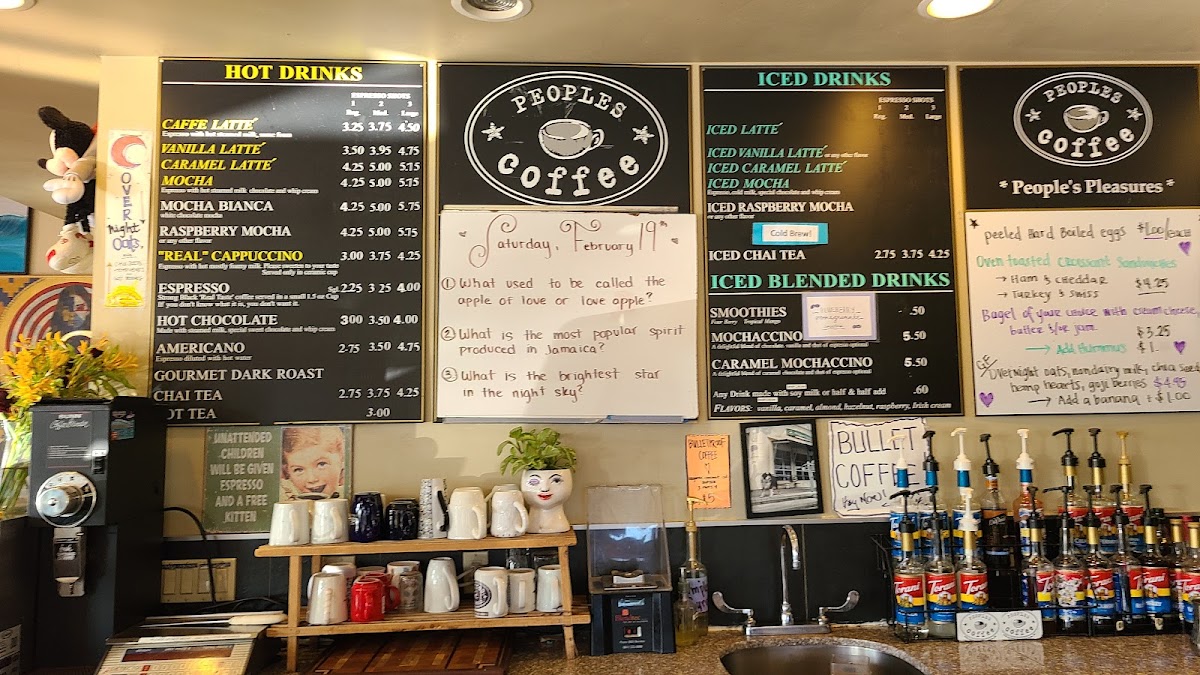 HOT DRINKS
ESPRESSO SHOTS
1 2 3
Reg. Med. Large
CAFFE LATTE 3.25 3.75 4.50
Espresso with hot steamed milk, some foam
VANILLA LATTE 3.50 3.95 4.75
CARAMEL LATTE 4.25 5.00 5.75
MOCHA 4.25 5.00 5.75
Espresso with hot steamed milk chocolate and whip cream
MOCHA BIANCA 4.25 5.00 5.75
white chocolate mocha
RASPBERRY MOCHA 4.25 5.00 5.75
or any other flavor
"REAL" CAPPUCCINO 3.00 3.75 4.25
Espresso with hot mostly foamy milk. Please sweeten to your taste
Served only in ceramic cup
ESPRESSO Sgl. 2.25 3.25 4.00
Strong Black 'Real Taste' coffee served in a small 1.5 oz Cup
If you don't know what it is, you don't want it.
HOT CHOCOLATE 3.00 3.50 4.00
Made with steamed milk, special sweet chocolate and whip cream
AMERICANO 2.75 3.50 4.75
Espresso diluted with hot water
GOURMET DARK ROAST
CHAI TEA 2.75 3.75 4.25
HOT TEA 3.00
OVER
Night
Oats
PEOPLES
Coffee
Saturday, February 19th
① What used to be called the
apple of love or love apple?
② What is the most popular spirit
produced in Jamaica?
③ What is the brightest star
in the night sky?
ICED DRINKS
ESPRESSO SHOTS
1 2 3
Reg. Med. Large
ICED LATTE
ICED VANILLA LATTE or any other flavor
ICED CARAMEL LATTE
ICED MOCHA
Espresso, cold milk, special chocolate and whip cream
ICED RASPBERRY MOCHA
or any other flavor
Cold Brew!
ICED CHAI TEA 2.75 3.75 4.25
ICED BLENDED DRINKS
SMOOTHIES .50
Four Berry Tropical Mango
pomegranate
MOCHACCINO 5.50
A delightful blend of chocolate vanilla and shot of espresso optional
CARAMEL MOCHACCINO 5.50
A delightful blend of caramel chocolate and shot of espresso optional
Any Drink made with soy milk or half & half add .60
FLAVORS: vanilla, caramel, almond, hazelnut, raspberry, Irish cream
PEOPLES
Coffee
* People's Pleasures *
peeled Hard Boiled eggs $1.00/each
Oven toasted Croissant Sandwiches
→ Ham & cheddar
→ Turkey & swiss $4.25
Bagel of your choice with cream cheese,
butter &/or jam $3.25
→ Add Hummus $1.
GF
Overnight oats, nondairy milk, chia seed
hemp hearts, goji berries $4.95
→ Add a banana + $1.00
UNATTENDED
CHILDREN
WILL BE GIVEN
ESPRESSO
AND A FREE
KITTEN
BULLETPROOF
COFFEE
$5
BULLET
COFFEE
Torani
Torani
Torani
Torani
Torani
Torani
Torani
Torani